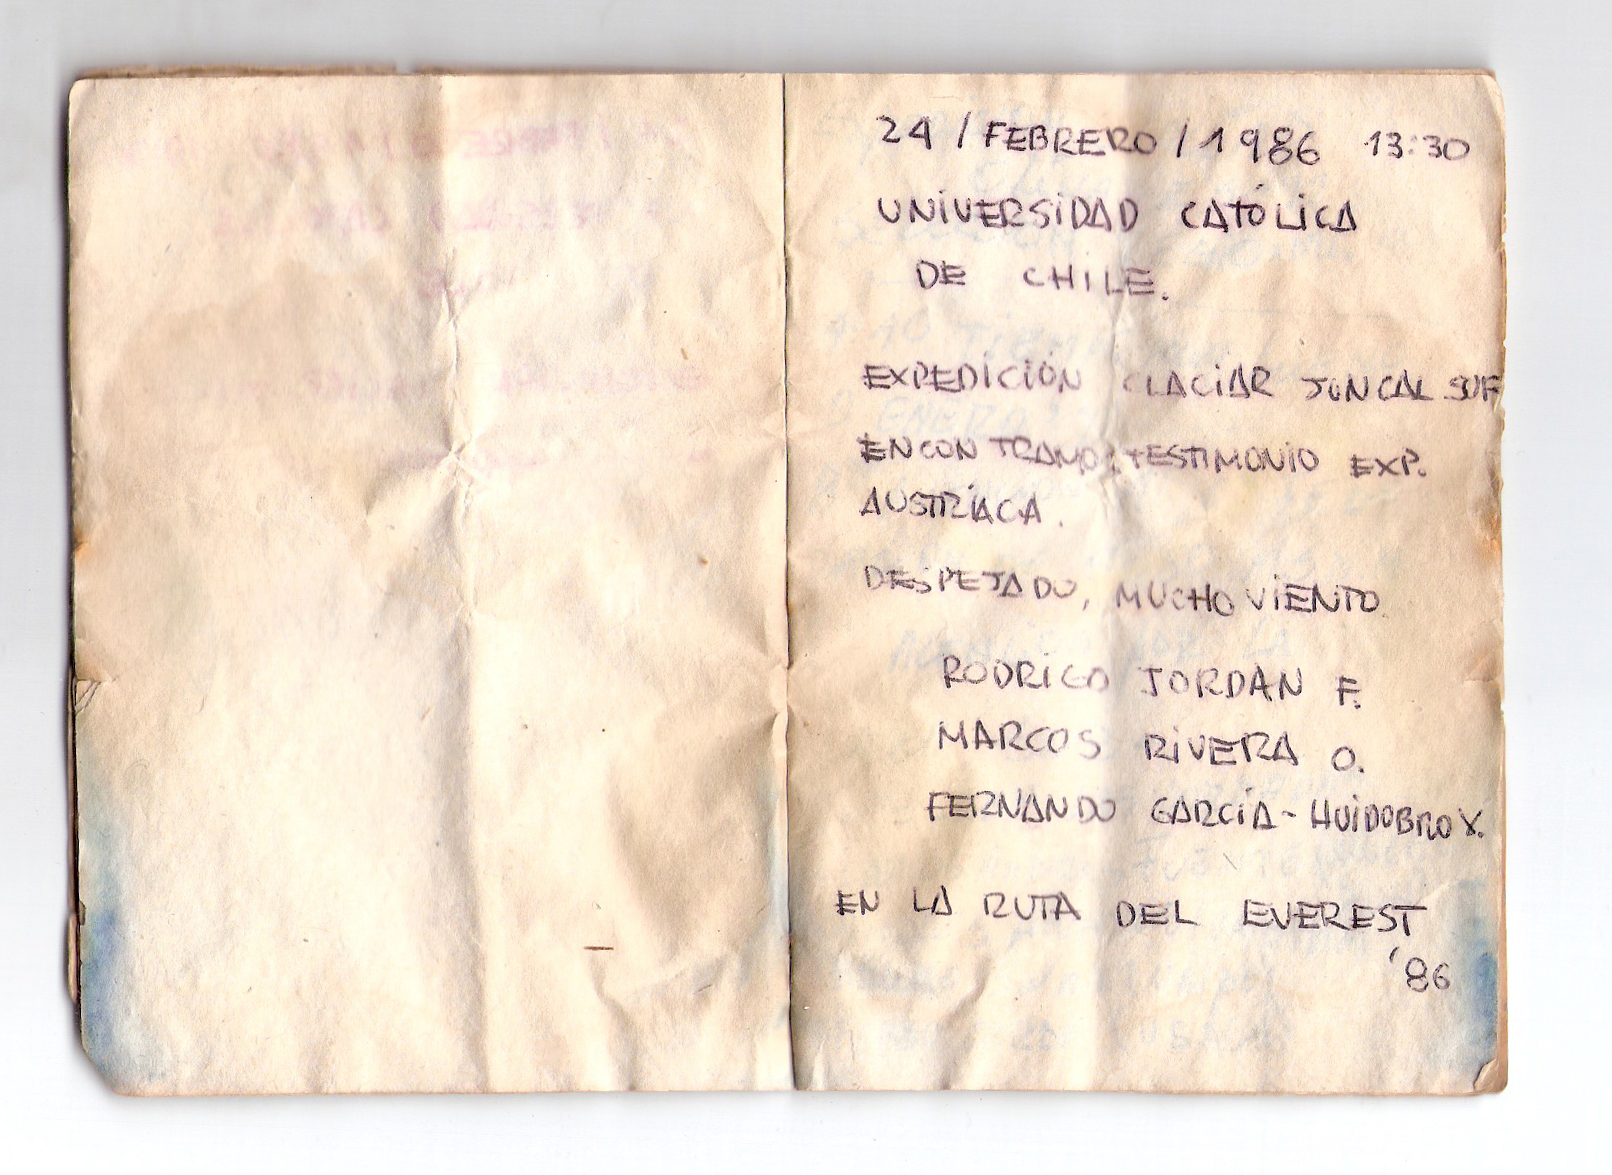 24 / FEBRERO / 1986 13:30
UNIVERSIDAD CATÓLICA
DE CHILE.
EXPEDICIÓN GLACIAR JUNCAL SUR
ENCONTRAMOS TESTIMONIO EXP.
AUSTRÍACA.
DESPEJADO, MUCHO VIENTO
RODRIGO JORDAN F.
MARCOS RIVERA O.
FERNANDO GARCÍA-HUIDOBRO V.
EN LA RUTA DEL EVEREST
'86